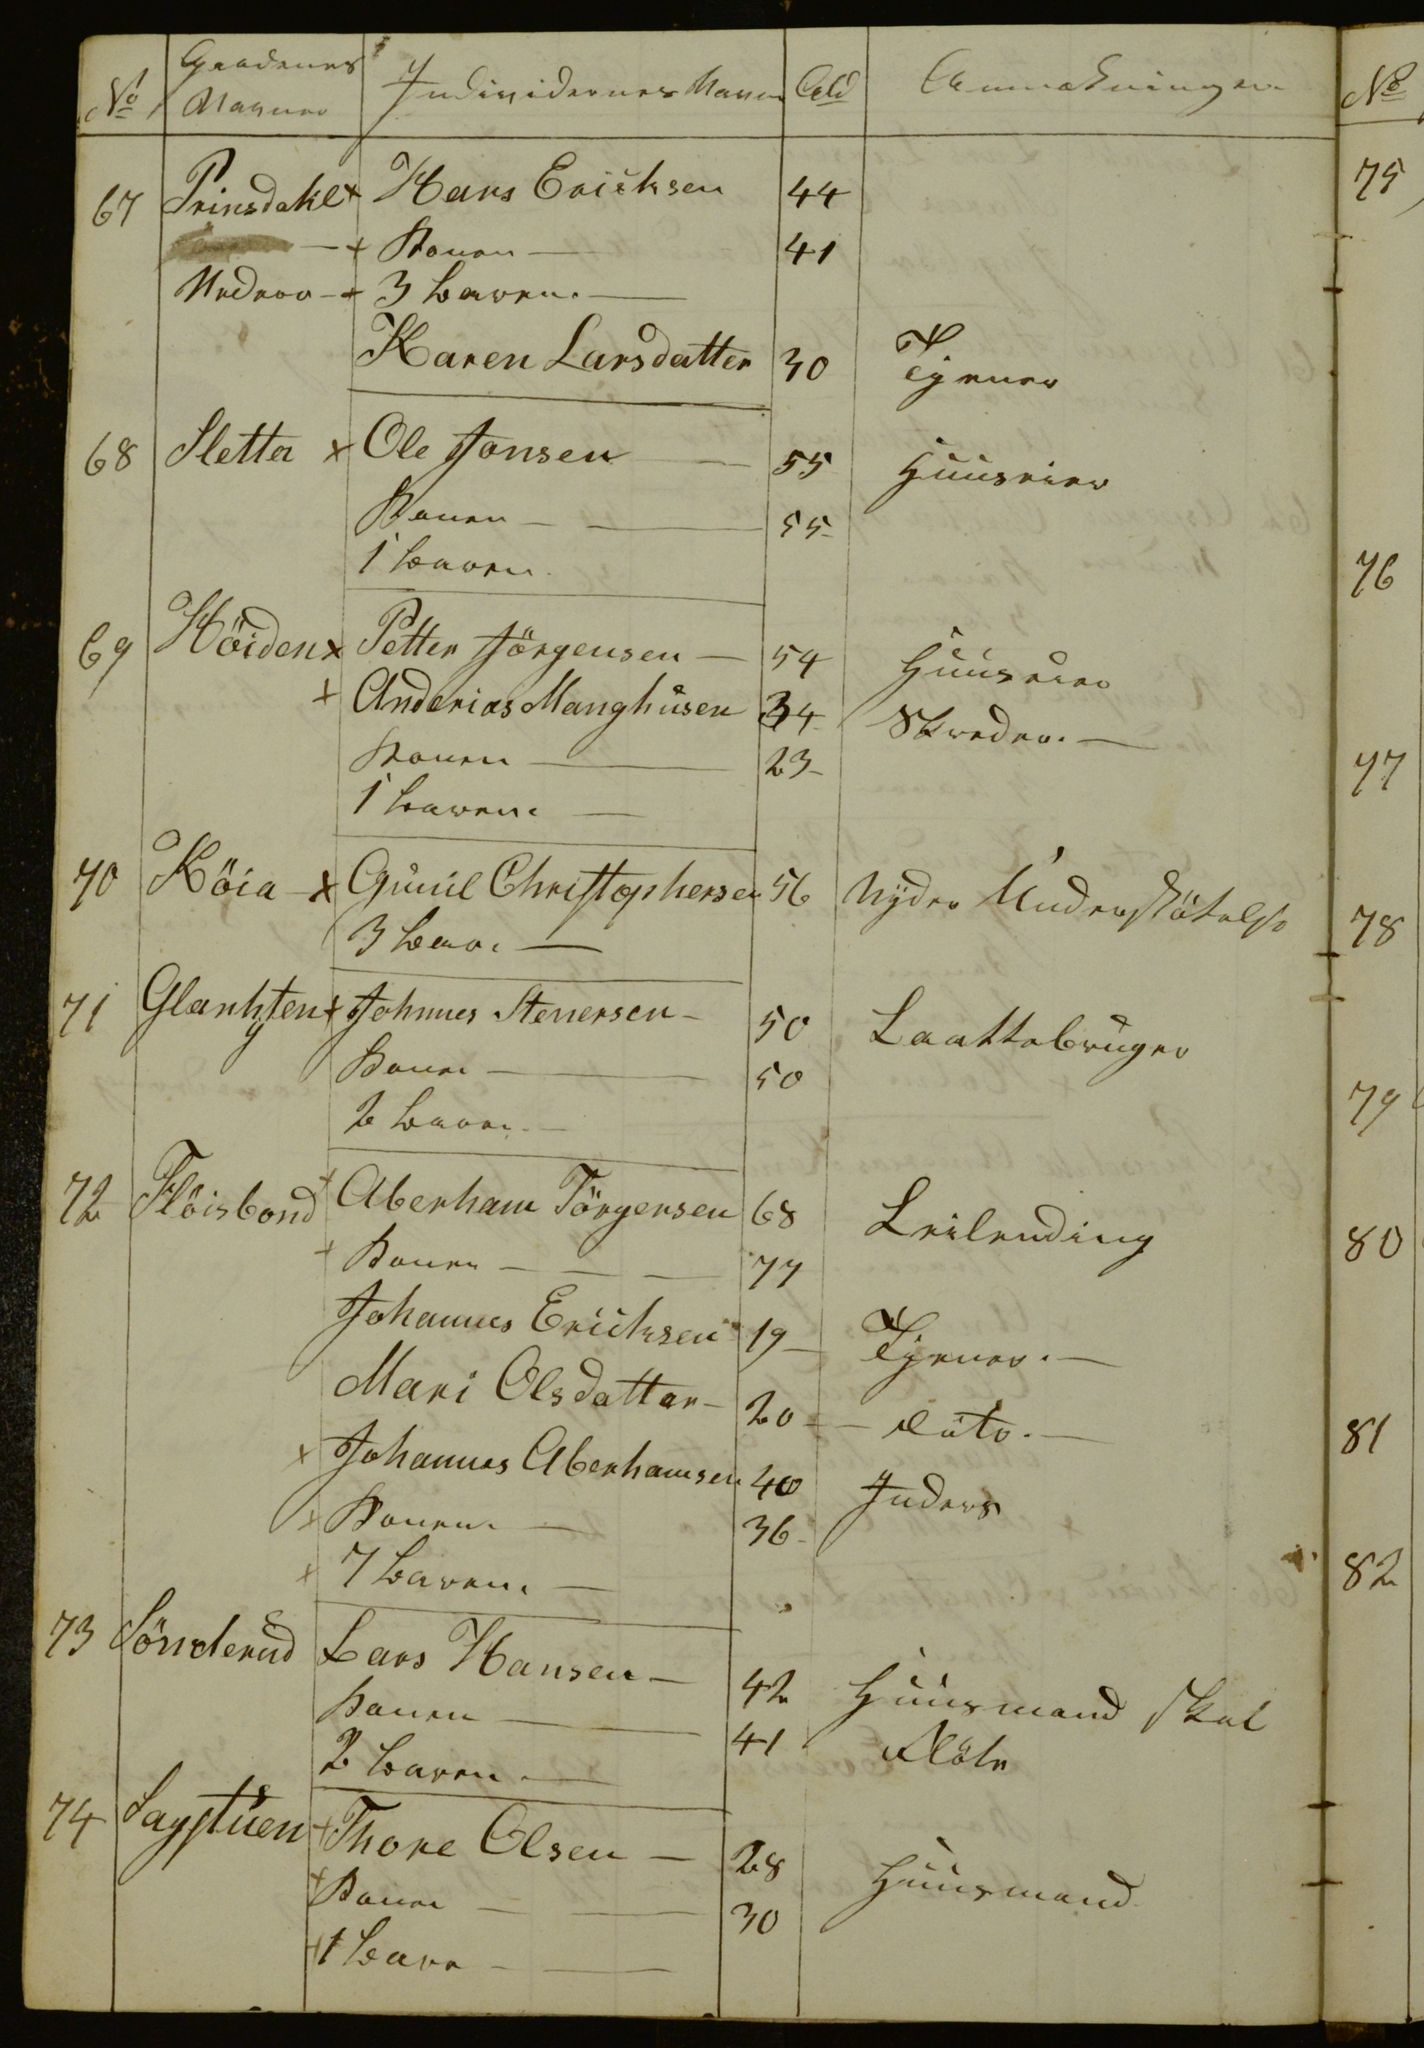 No Gaardenes Navne Individernes Navne Ald Anmærkninger
67 Prinsdahl x Hans Ericksen 44
— x Konen — 41
Nedere — x 3 Børn. —
Karen Larsdatter 30 Tjener
68 Sletta x Ole Jonsen — 55 Huuseier
Konen — — 55
1 Barn
69 Höiden x Petter Jörgensen — 54 Huuseier
x Anderias Manghusen 34 Skreder. —
Konen — 23
1 Barn. —
70 Köia — x Gunil Christophersen 56 Nyder Understötelse
3 Bør. —
71 x Johnnes Stenersen — 50 Laattebruger
Kone — 50
2 Børn. —
72 Flöisbond x Aberham Törgersen 68 Leilending
x Konen — — — 77
Johannes Ericksen 19 — Tjener. —
Mari Olsdatter — 20 — — dito. —
x Johannes Aberhamsen 40 Inders
x Konen. — 36
x 7 Børn. —
73 Sönderud Lars Hansen — 42 Huusmand skal
Konen — 41 Flöte
2 Børn. —
74 Sagstuen x Thore Olsen — 28 Huusmand
x Kone — — 30
x 1 Barn — —
No
75
76
77
78
79
80
81
82